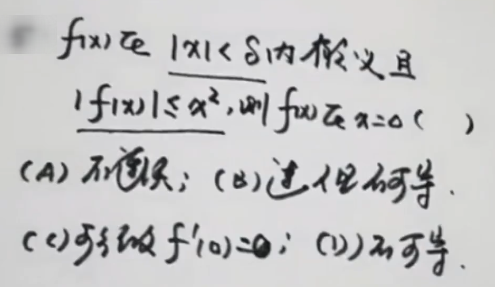 f(x)在 |x|<δ内有定义且
|f(x)|≤x²,则f(x)在x=0( )
(A) 不连续; (B)连但不可导.
(C)可导且f'(0)=0; (D)不可导.